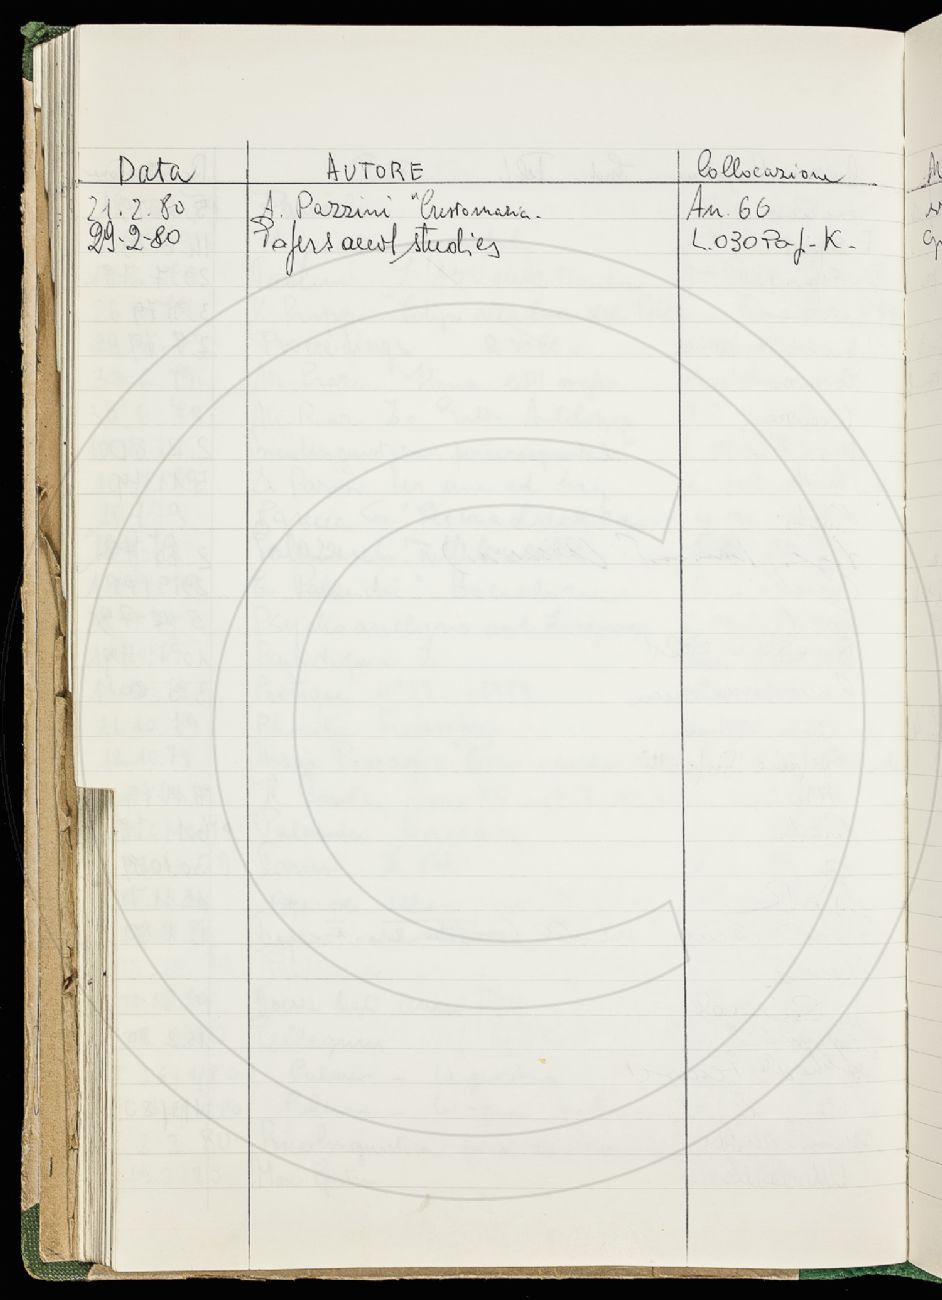 Data AUTORE Collocazione
21.2.80 A. Pazzini "Crestomazia. An. 66
29-2-80 Papers and studies L.030 Pap-K.